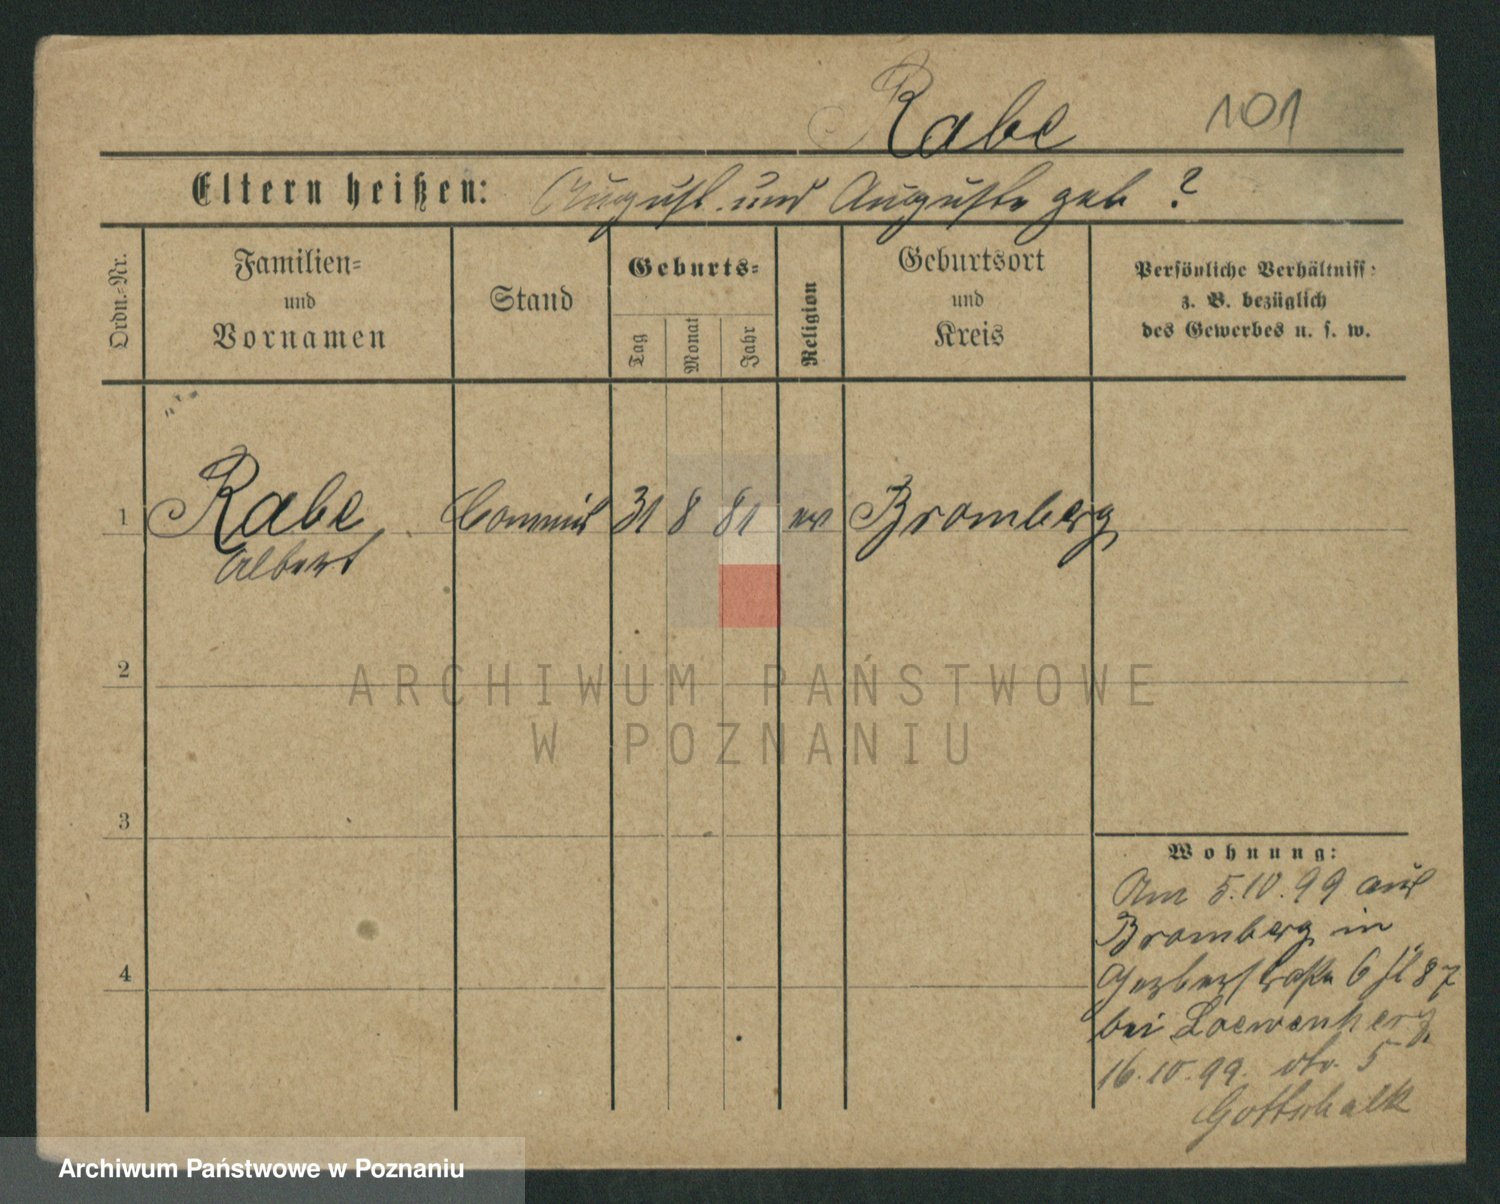 Rabe 101
Eltern heißen: August und Auguste geb ?
Ordn.-Nr.
Familien-
und
Vornamen
Stand
Geburts-
Tag
Monat
Jahr
Religion
Geburtsort
und
Kreis
Persönliche Verhältniss:
z. B. bezüglich
des Gewerbes u. s. w.
1 Rabe Commis 31 8 81 ev Bromberg
Albert
2
3
4
Wohnung:
Am 5.10.99 aus
Bromberg in
Gerberstraße 6
bei Loewenberg
16.10.99. 5
Gottschalk
ARCHIWUM PAŃSTWOWE
W POZNANIU
Archiwum Państwowe w Poznaniu